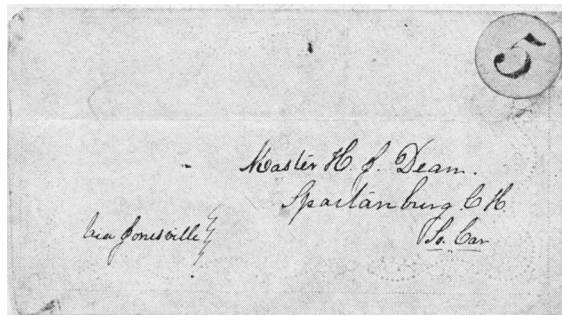 5
Master H. J. Dean.
Spartanburg C. H.
So. Car
Via Jonesville